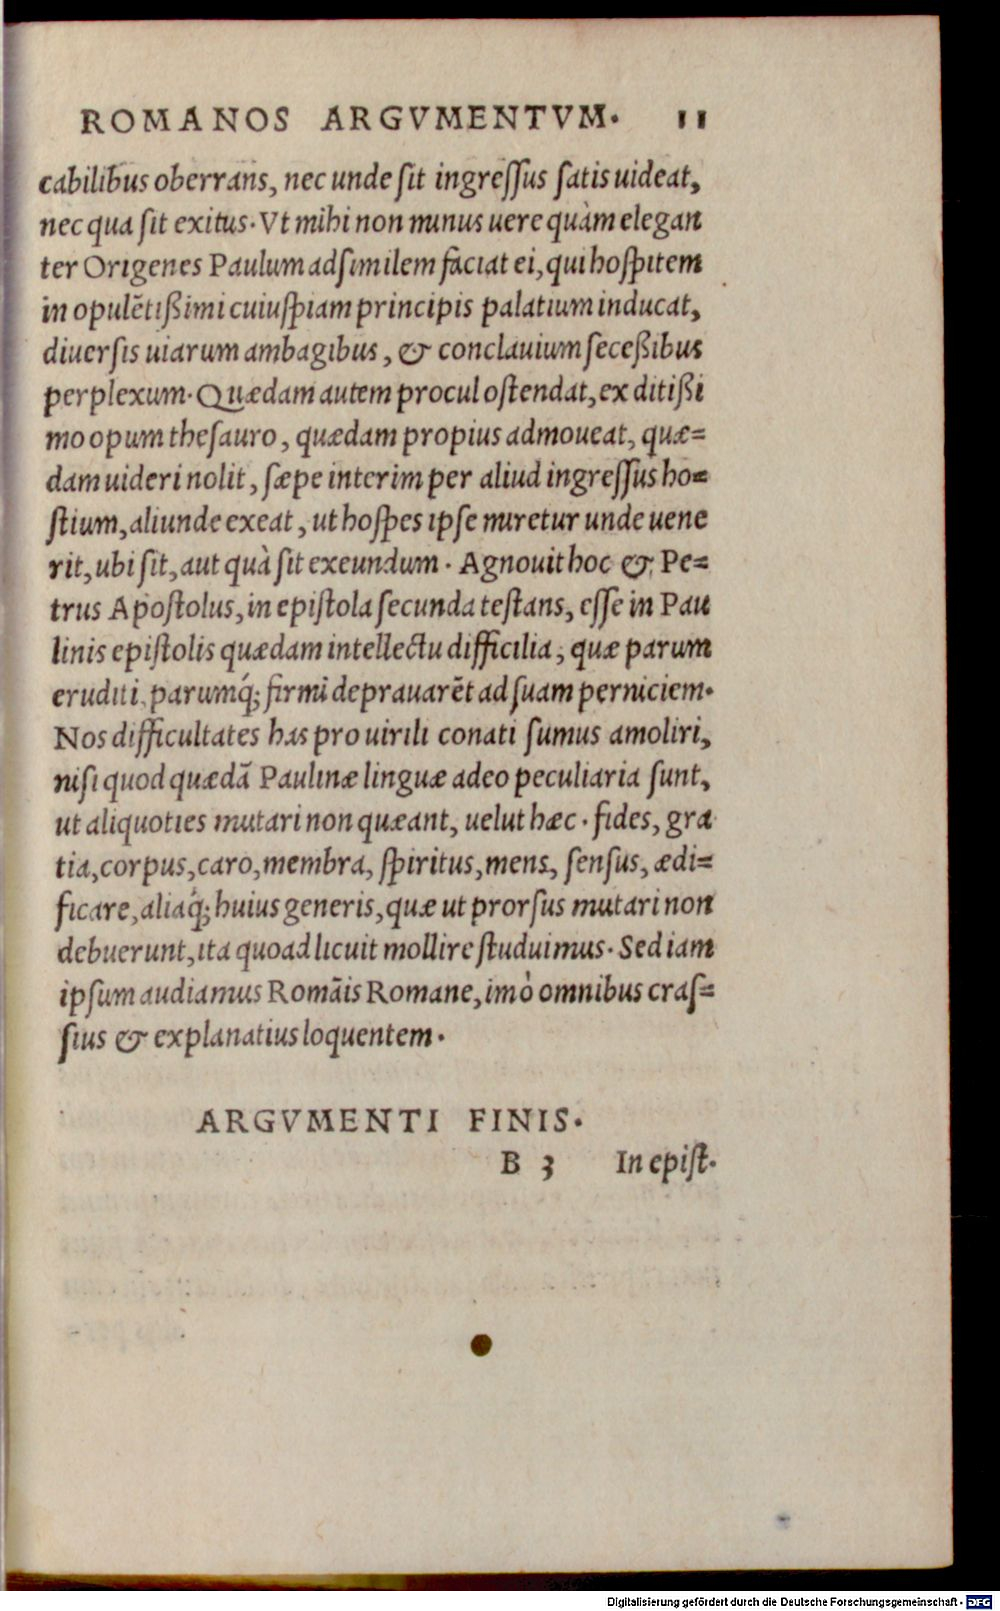 ROMANOS ARGVMENTVM. 11
cabilibus oberrans, nec unde sit ingressus satis uideat,
nec qua sit exitus. Vt mihi non minus uere quàm elegan
ter Origenes Paulum adsimilem faciat ei, qui hospitem
in opulētißimi cuiuspiam principis palatium inducat,
diuersis uiarum ambagibus, & conclauium seceßibus
perplexum. Quædam autem procul ostendat, ex ditißi
mo opum thesauro, quædam propius admoueat, quæ=
dam uideri nolit, sæpe interim per aliud ingressus ho=
stium, aliunde exeat, ut hospes ipse miretur unde uene
rit, ubi sit, aut quà sit exeundum. Agnouit hoc & Pe=
trus Apostolus, in epistola secunda testans, esse in Pau
linis epistolis quædam intellectu difficilia, quæ parum
eruditi, parumq́; firmi deprauarēt ad suam perniciem.
Nos difficultates has pro uirili conati sumus amoliri,
nisi quod quædā Paulinæ linguæ adeo peculiaria sunt,
ut aliquoties mutari non quæant, uelut hæc. fides, gra
tia, corpus, caro, membra, spiritus, mens, sensus, ædi=
ficare, aliaq́; huius generis, quæ ut prorsus mutari non
debuerunt, ita quoad licuit mollire studuimus. Sed iam
ipsum audiamus Romāis Romane, imò omnibus cras=
sius & explanatius loquentem.
ARGVMENTI FINIS.
B 3 In epist.
Digitalisierung gefördert durch die Deutsche Forschungsgemeinschaft - DFG